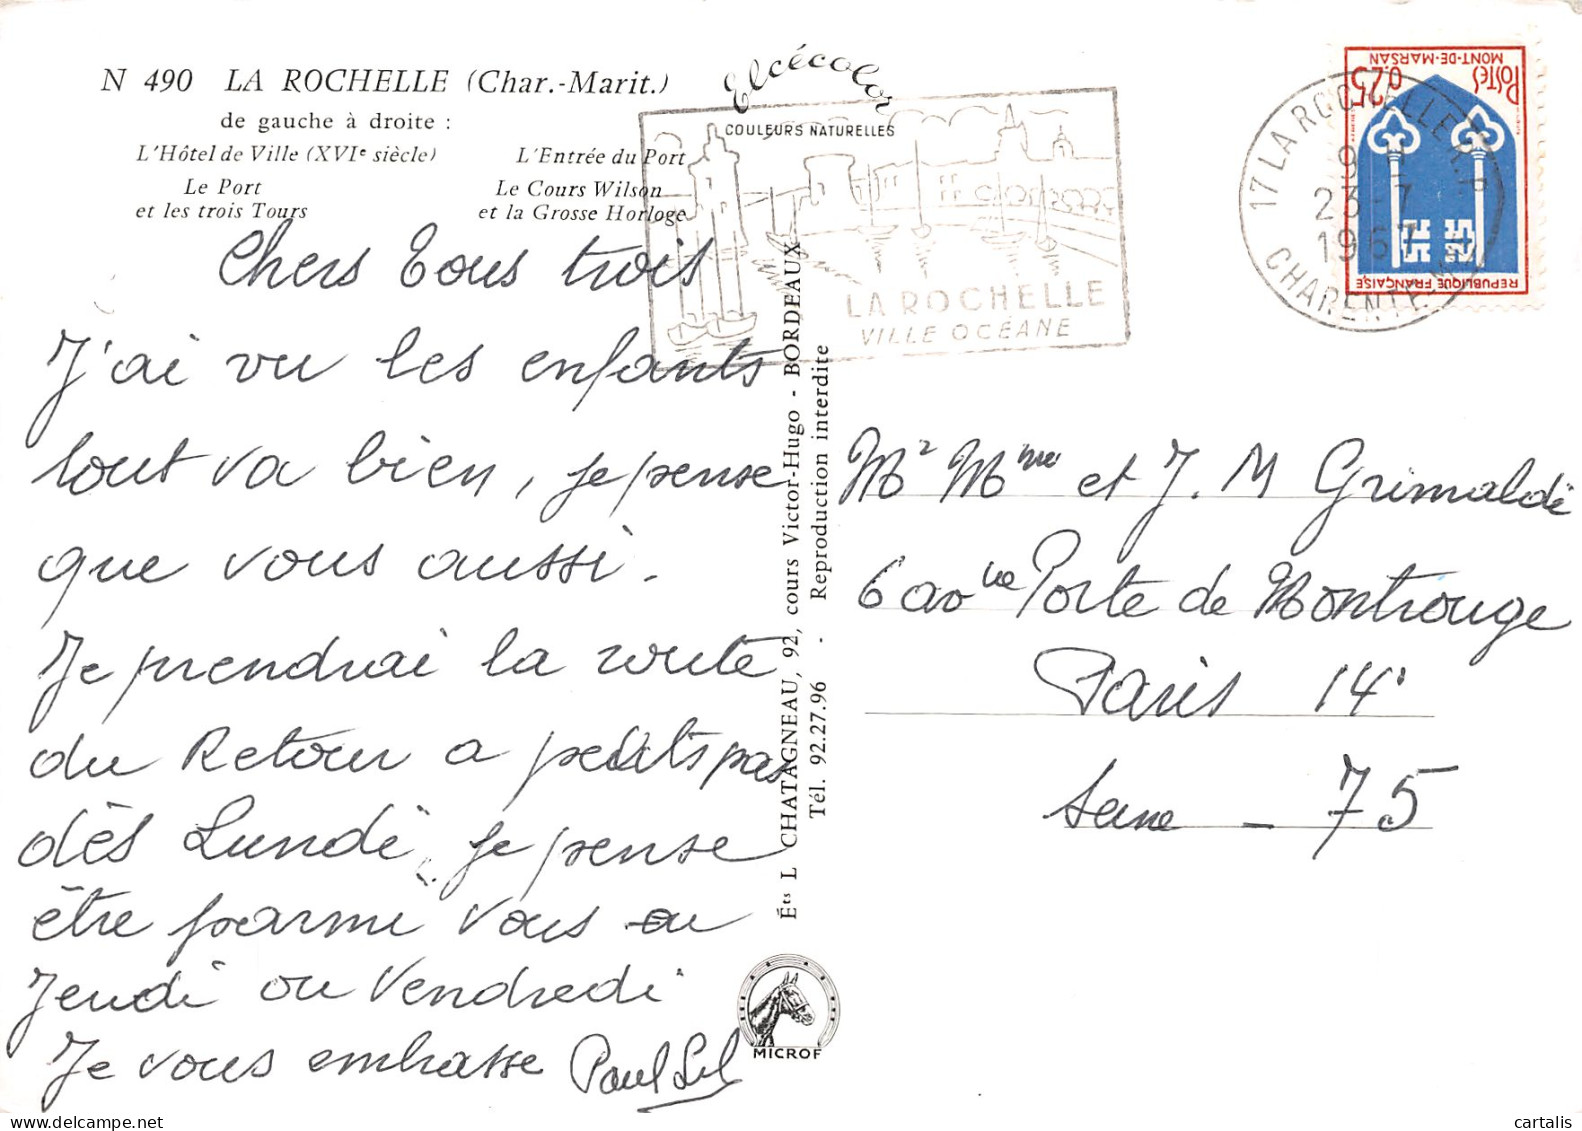 N 490 LA ROCHELLE (Char.-Marit.)
de gauche à droite :
L'Hôtel de Ville (XVIe siècle) L'Entrée du Port
Le Port Le Cours Wilson
et les trois Tours et la Grosse Horloge
Elcécolor
COULEURS NATURELLES
LA ROCHELLE
VILLE OCÉANE
17 LA ROCHELLE R.P
9 H
23-7
1967
CHARENTE-M
MONT-DE-MARSAN
POSTES 0,25
REPUBLIQUE FRANÇAISE
Chers Tous trois
J'ai vu les enfants
tout va bien, je pense
que vous aussi.
Je prendrai la route
du Retour a petits pas
dès Lundi, je pense
être parmi vous au
Jeudi ou Vendredi
Je vous embrasse Paul
Éts L CHATAGNEAU, 92, cours Victor-Hugo - BORDEAUX
Tél. 92.27.96 - Reproduction interdite
MICROF
Mr Mme et J. M Grimaldi
6 avnue Porte de Montrouge
Paris 14
Seine - 75
cartalis